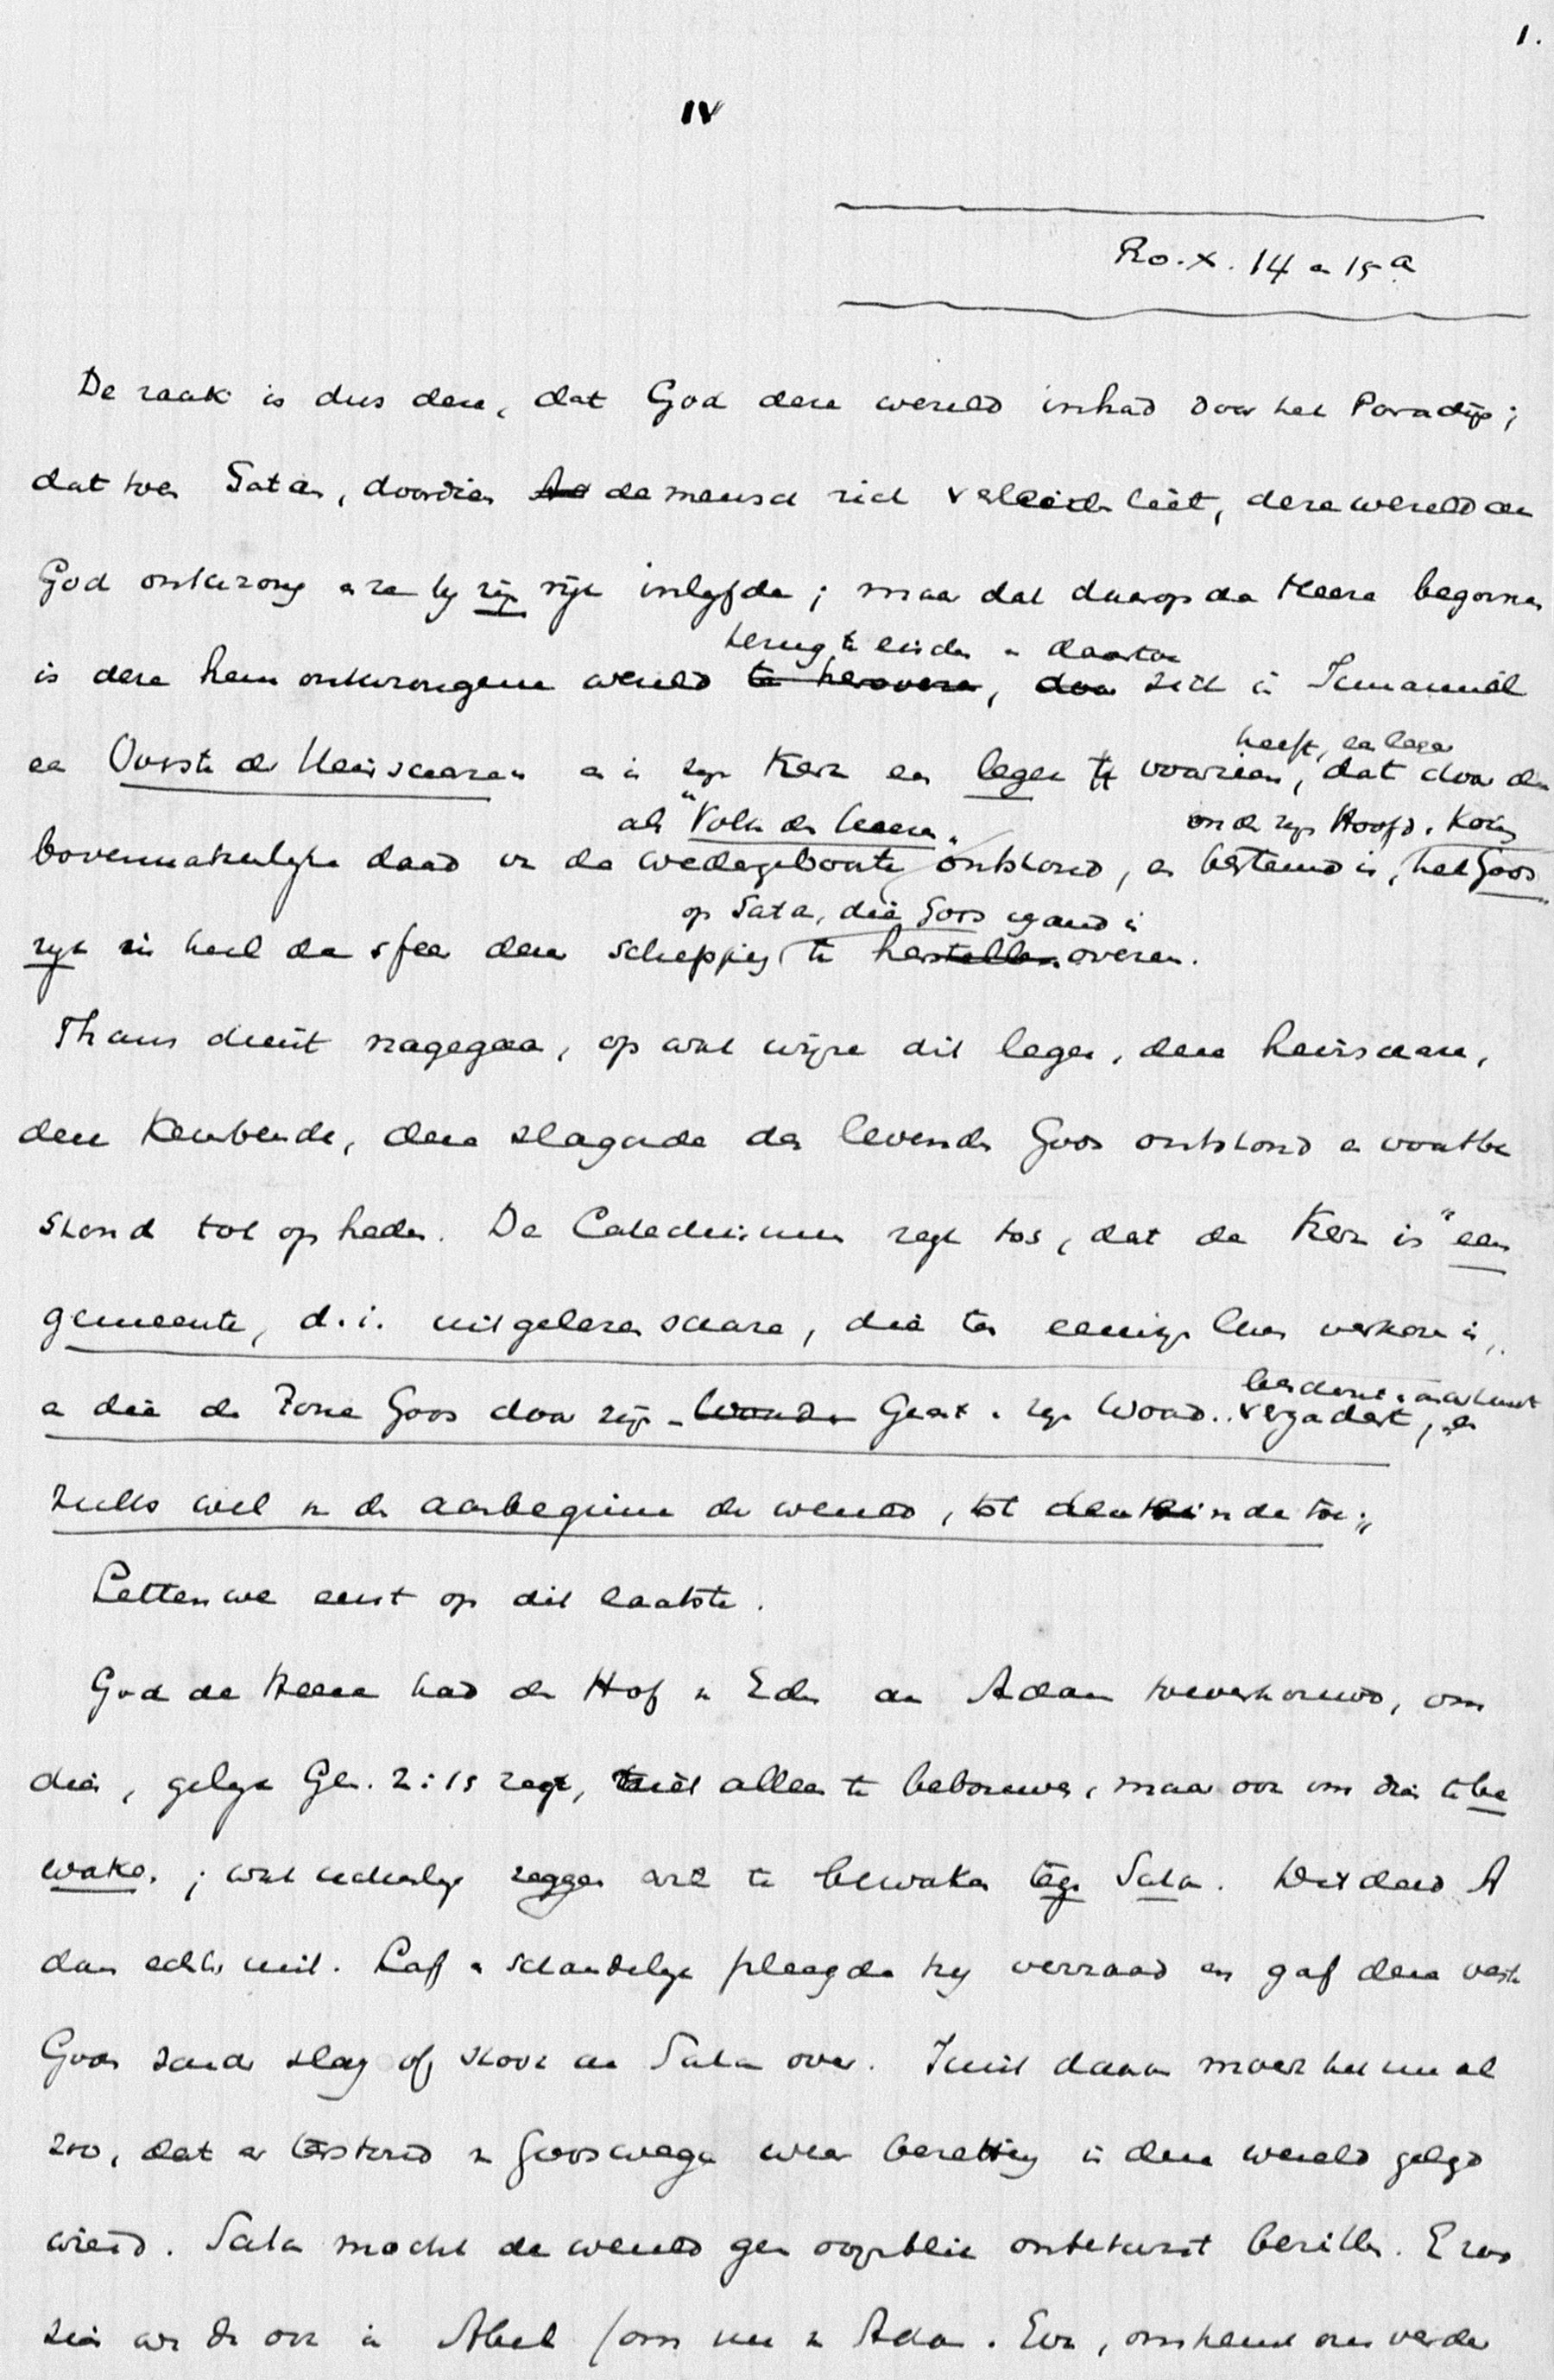 1.
IV
Ro. X. 14 en 15a
De zaak is dus deze, dat God deze wereld inhad door het Paradijs;
dat toen Satan, doordien de mensch zich verleiden liet, deze wereld aan
God ontwrong en ze bij zijn rijk inlijfde; maar dat daarop de Heere begonnen
terug te leiden en daartoe
is deze hem ontwrongene wereld te heroveren, door zich in Immanuël
heeft, een leger
een Overste der Heirscaren en in zijn Kerk een leger te voorzien, dat door de
als "Volk des Heeren" onder zijn Hoofd en Koning
bovennatuurlijke daad van de wedergeboorte ontstond, en bestemd is, het Gods
op Satan, die Gods vijand is
rijk in heel de sfeer dezer schepping te herstellen overen.
Thans dient nagegaan, op wat wijze dit leger, deze heirscare,
deze Keurbende, deze slagorde des levenden Gods ontstond en voortbe
stond tot op heden. De Catechismus zegt ons, dat de Kerk is "een
gemeente, d.i. uitgelezen scare, die ten eeuwigen leven verkoren is,
beschermt en onderhoudt
en die de Zone Gods door zijn Woord en Geest en zijn Woord vergadert, en
zulks wel van den aanbeginne der wereld, tot den einde toe"
Letten we eerst op dit laatste.
God de Heere had den Hof van Eden aan Adam toevertrouwd, om
dien, gelijk Gen. 2:15 zegt, niet alleen te bebouwen, maar ook om dien te be
waken; wat zeggen wil te bewaken tegen Satan. Dit deed A
dam echter niet. Laf en schandelijk pleegde hij verraad en gaf deze veste
Gods zonder slag of stoot aan Satan over. Intusschen
zoo, dat er terstond van Godswege weer bezetting in deze wereld gelegd
wierd. Satan mocht de wereld geen oogenblik onbetwist bezitten. En zoo
zien we dan ook in Abel (om nu van Adam en Eva, omtrent wier verder